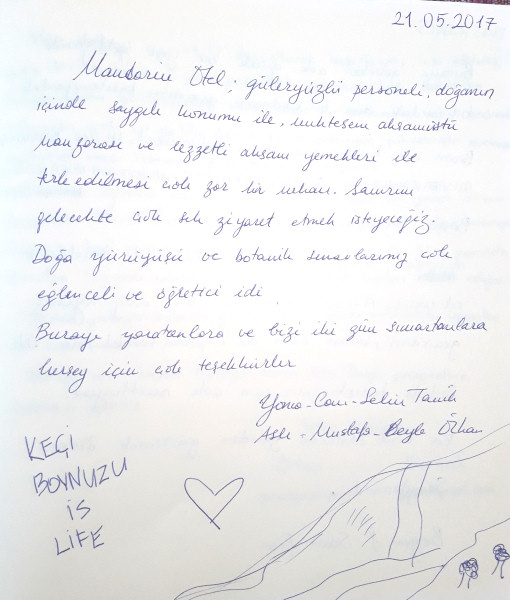 21.05.2017
Mandarin Otel; güleryüzlü personeli, doğanın
içinde saygılı konumu ile, muhteşem akşamüstü
manzarası ve lezzetli akşam yemekleri ile
terk edilmesi çok zor bir mekan. Sanırım
gelecekte çok sık ziyaret etmek isteyeceğiz.
Doğa yürüyüşü ve botanik sınavlarımız çok
eğlenceli ve öğretici idi.
Burayı yaratanlara ve bizi iki gün şımartanlara
herşey için çok teşekkürler
Can - Selin Tanık
Aslı - Mustafa - Özkan
KEÇİ
BOYNUZU
iS
LiFE